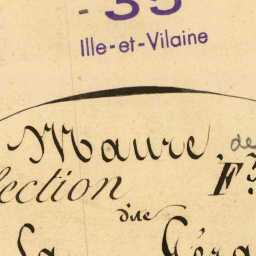 - 35
Ille-et-Vilaine
Maure, de
lection F.
dite
La Géra